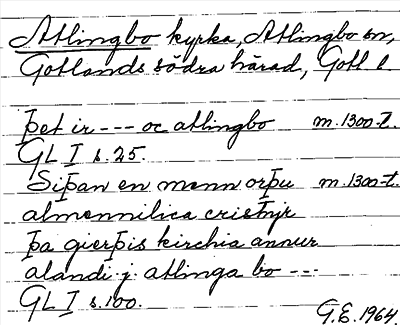 Atlingbo kyrka, Atlingbo sn,
Gotlands södra härad, Gotl l
Þet ir --- oc atlingbo m. 1300-t.
GL I s. 25.
Siþan en menn orþu m. 1300-t.
almennilica cristnir
þa gierþis kirchia annur
alandi. j. atlinga bo ---
GL I s. 100.
G.E. 1964.